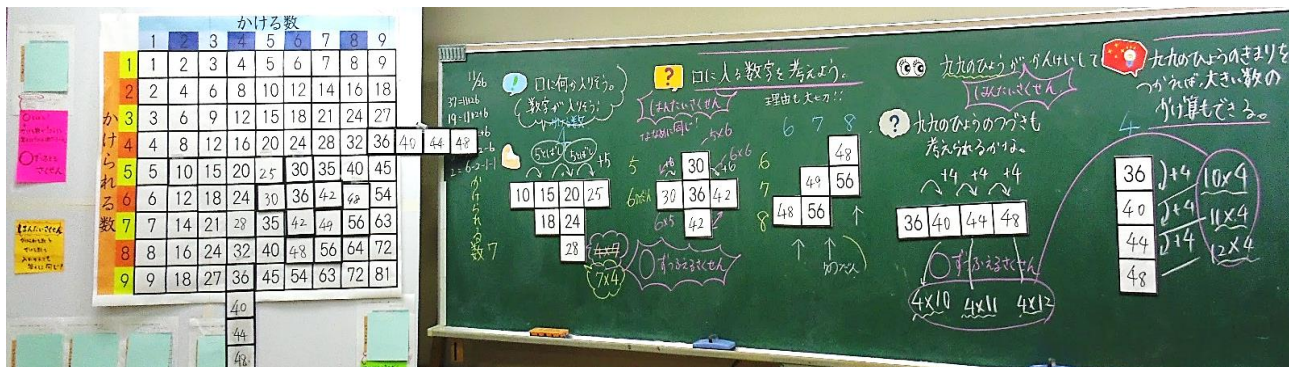 かける数
1 2 3 4 5 6 7 8 9
かけられる数
1 1 2 3 4 5 6 7 8 9
2 2 4 6 8 10 12 14 16 18
3 3 6 9 12 15 18 21 24 27
4 4 8 12 16 20 24 28 32 36 40 44 48
5 5 10 15 20 25 30 35 40 45
6 6 12 18 24 30 36 42 48 54
7 7 14 21 28 35 42 49 56 63
8 8 16 24 32 40 48 56 64 72
9 9 18 27 36 45 54 63 72 81
40
44
48
11/26
! 口に何が入りそう。
数字が入りそう!
+5
10 15 20 25
18 24
28
4×7
7×4
かけられる数
7
? 口に入る数字を考えよう。
理由も大切!!
はんたいさくせん
ななめに同じ!
5×6
6×6
5
+6
30
+6
6のだん
30 36 42
6×5
42
○ずつふえるさくせん
6 7 8
6 48
7 49 56
8 48 56
九九のひょうが、かんけいして
はんたいさくせん
? 九九のひょうのつづきも
考えられるかな。
+4 +4 +4
36 40 44 48
○ずつふえるさくせん
4×10 4×11 4×12
九九のひょうのきまりを
つかえば、大きい数の
かけ算もできる。
4
36
+4 10×4
40
+4 11×4
44
+4 12×4
48